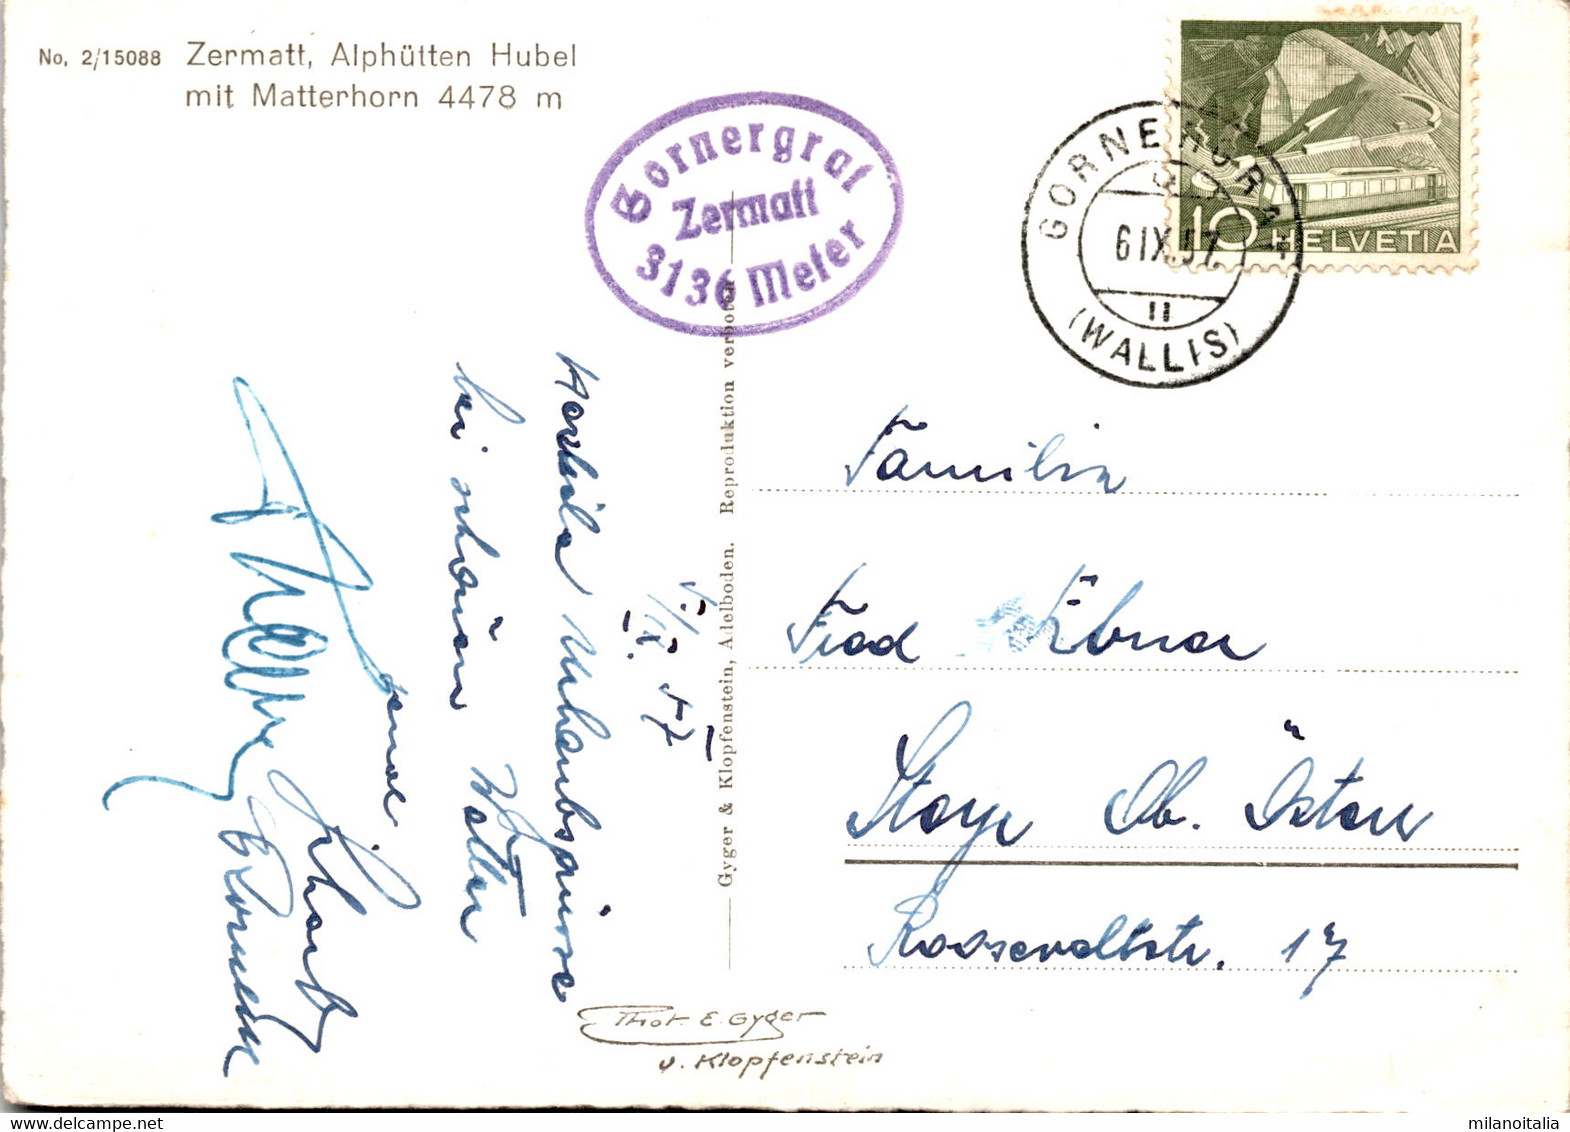 No. 2/15088 Zermatt, Alphütten Hubel
mit Matterhorn 4478 m
Gornergrat
Zermatt
3136 Meter
GORNERGRAT
6 IX. 57
(WALLIS)
10 HELVETIA
5./IX. 57
Herzliche Urlaubsgrüsse
bei schönem Wetter
Familie
Fred Ebner
Steyr Ob. Östen
Rooseveltstr. 17
Gyger & Klopfenstein, Adelboden. Reproduktion verboten
Phot. E. Gyger
u. Klopfenstein
milanoitalia